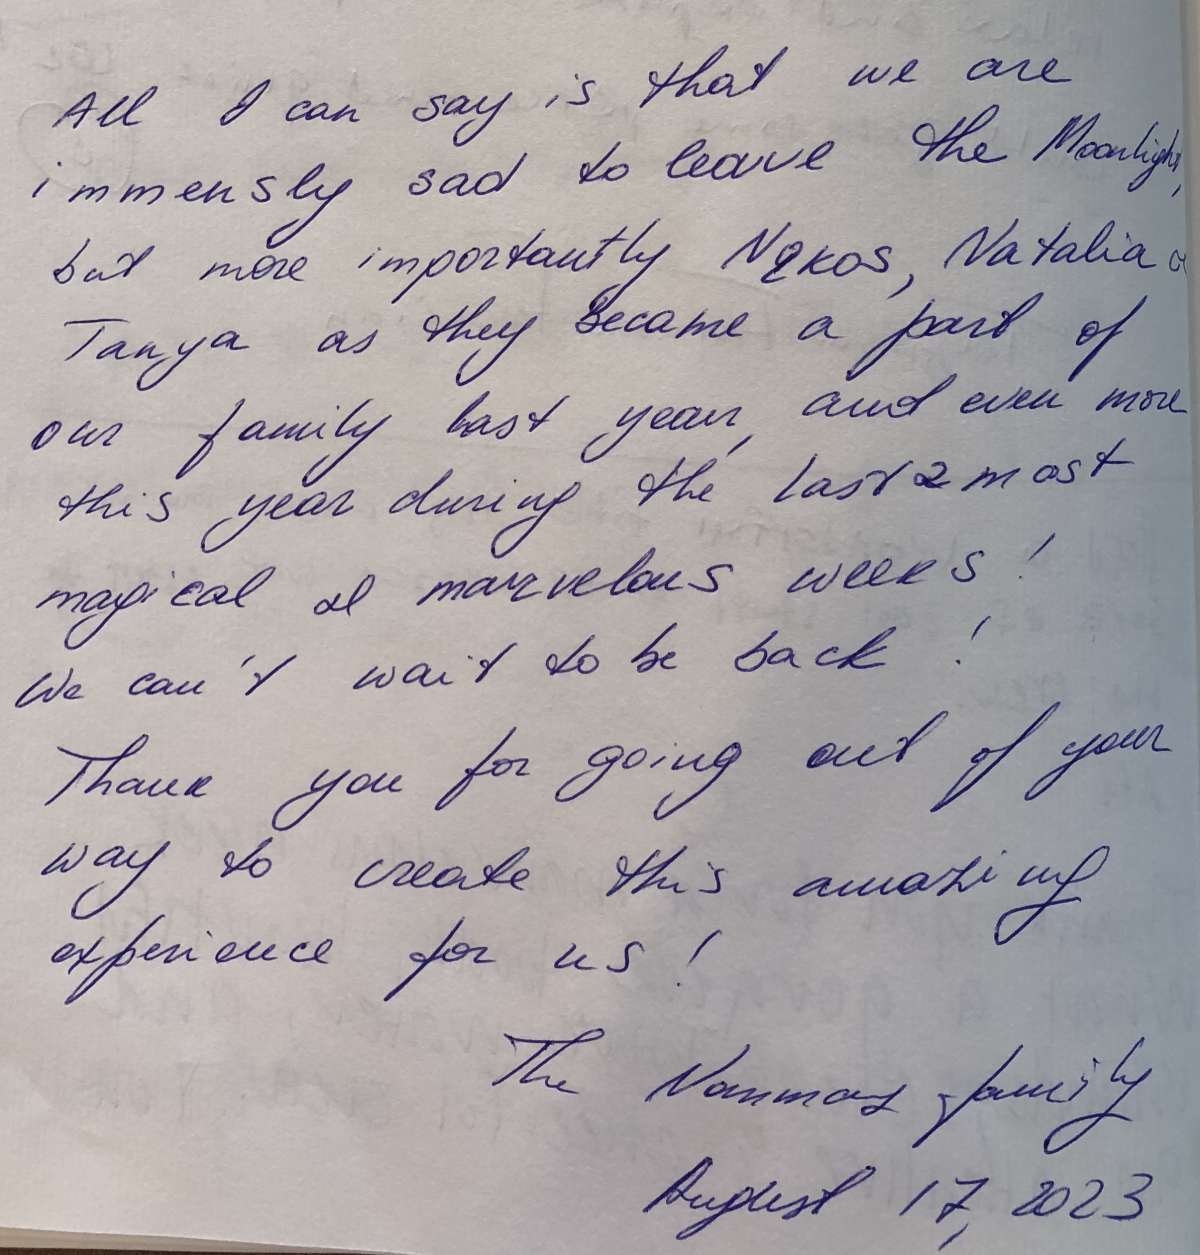 All I can say is that we are
immensly sad to leave the Moonlight,
but more importantly Nqkos, Natalia &
Tanya as they became a part of
our family last year, and even more
this year during the last 2 most
magical & marvelous weeks!
We can't wait to be back!
Thank you for going out of your
way to create this amazing
experience for us!
The family
August 17, 2023